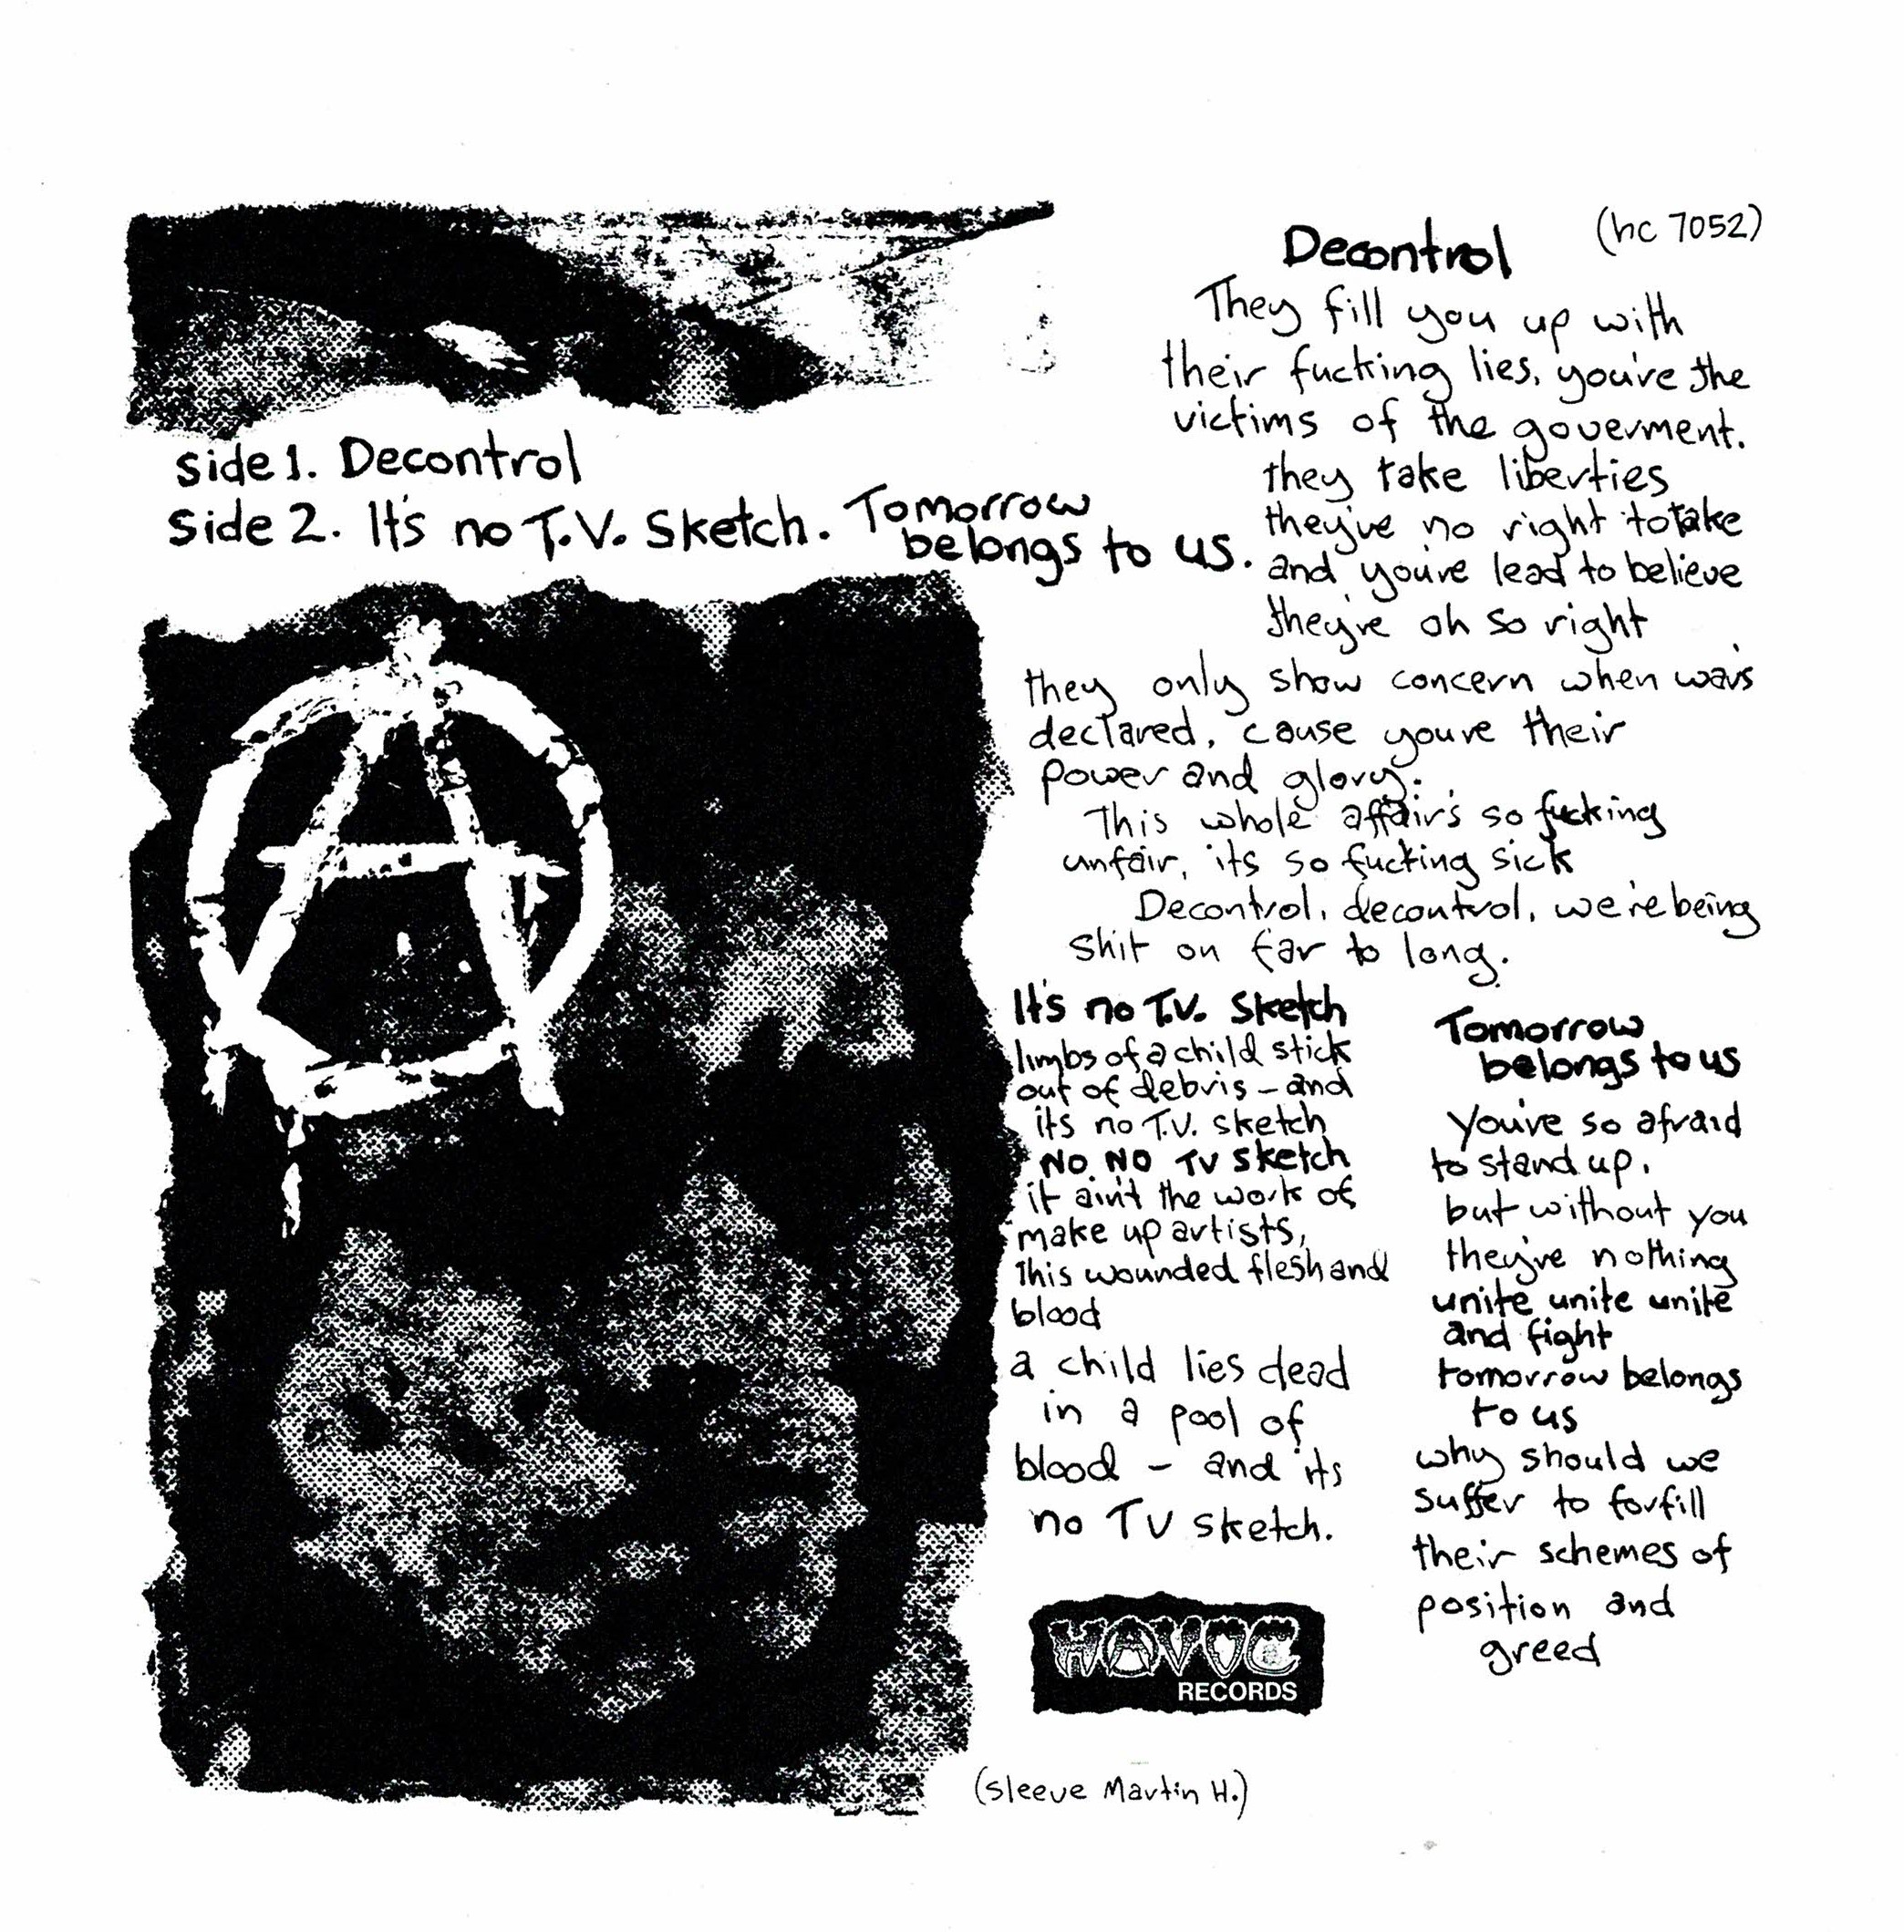 (hc 7052)
side 1. Decontrol
side 2. It's no T.V. Sketch. Tomorrow
belongs to us.
Decontrol
They fill you up with
their fucking lies, you're the
victims of the goverment.
they take liberties
they've no right to take
and you're lead to believe
they're oh so right
they only show concern when war's
declared, 'cause youre their
power and glory.
This whole affair's so fucking
unfair, its so fucking sick
Decontrol, decontrol, we're being
shit on far to long.
It's no T.V. Sketch
limbs of a child stick
out of debris - and
its no T.V. sketch
NO NO TV sketch
it ain't the work of
make up artists,
This wounded flesh and
blood
a child lies dead
in a pool of
blood - and its
no TV sketch.
Tomorrow
belongs to us
You're so afraid
to stand up,
but without you
they're nothing
unite unite unite
and fight
tomorrow belongs
to us
why should we
suffer to forfill
their schemes of
position and
greed
HAVOC
RECORDS
(sleeve Martin H.)